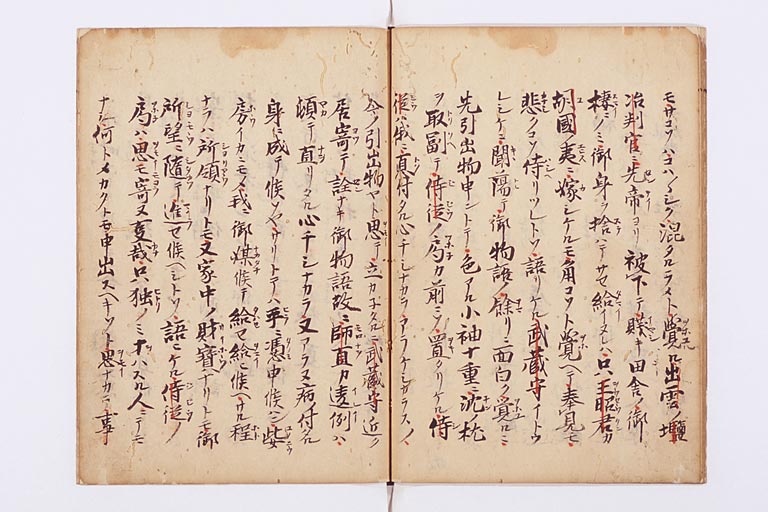 モサコソハヨハ〱シク混タルラメト覺ル出雲塩
冶判官ニ先帝ヨリ被下テ賤キ田舎ノ御
棲ニノミ御身ヲ捨ハテサセ給イヌレハ只王昭君カ
胡國ノ夷ニ嫁シケルモ角コソト覺ヘテ奉寛モ
悲クコソ侍リツレトソ語リケル武蔵守イトヽウ
レシケニ聞蕩テ御物語ノ餘リニ面白ク覺ルニ
先引出物申ントテ色アル小袖十重ニ沈ノ枕
ヲ取副テ侍従ノ局カ前ニソ置タリケル侍
従ハ俄ニ真付タル心チシナカラアラケシカラスノ
今ノ引出物ヤト思テ立カネタルニ武蔵守近ク
居寄テ詮ナキ御物語故ニ師直カ違例ハ
頓テ直リタル心チシナカラ又アラヌ病付タル
身ニ成テ候ソヤサリトテハ平ニ憑申候ハン此女
房イカニモメ我ニ御媒候テ給セ給ヒ候ヘサル程
ナラハ所領ナリトモ又家中ノ財寳ナリトモ御
所望ニ隨テ進セ候ヘシトソ語ヒケル侍従ノ
局ハ思モ寄ヌ夏哉只独ノミヲハスル人ニテモ
ナシ何トメカクトモ申出スヘキソト思ナカラ事